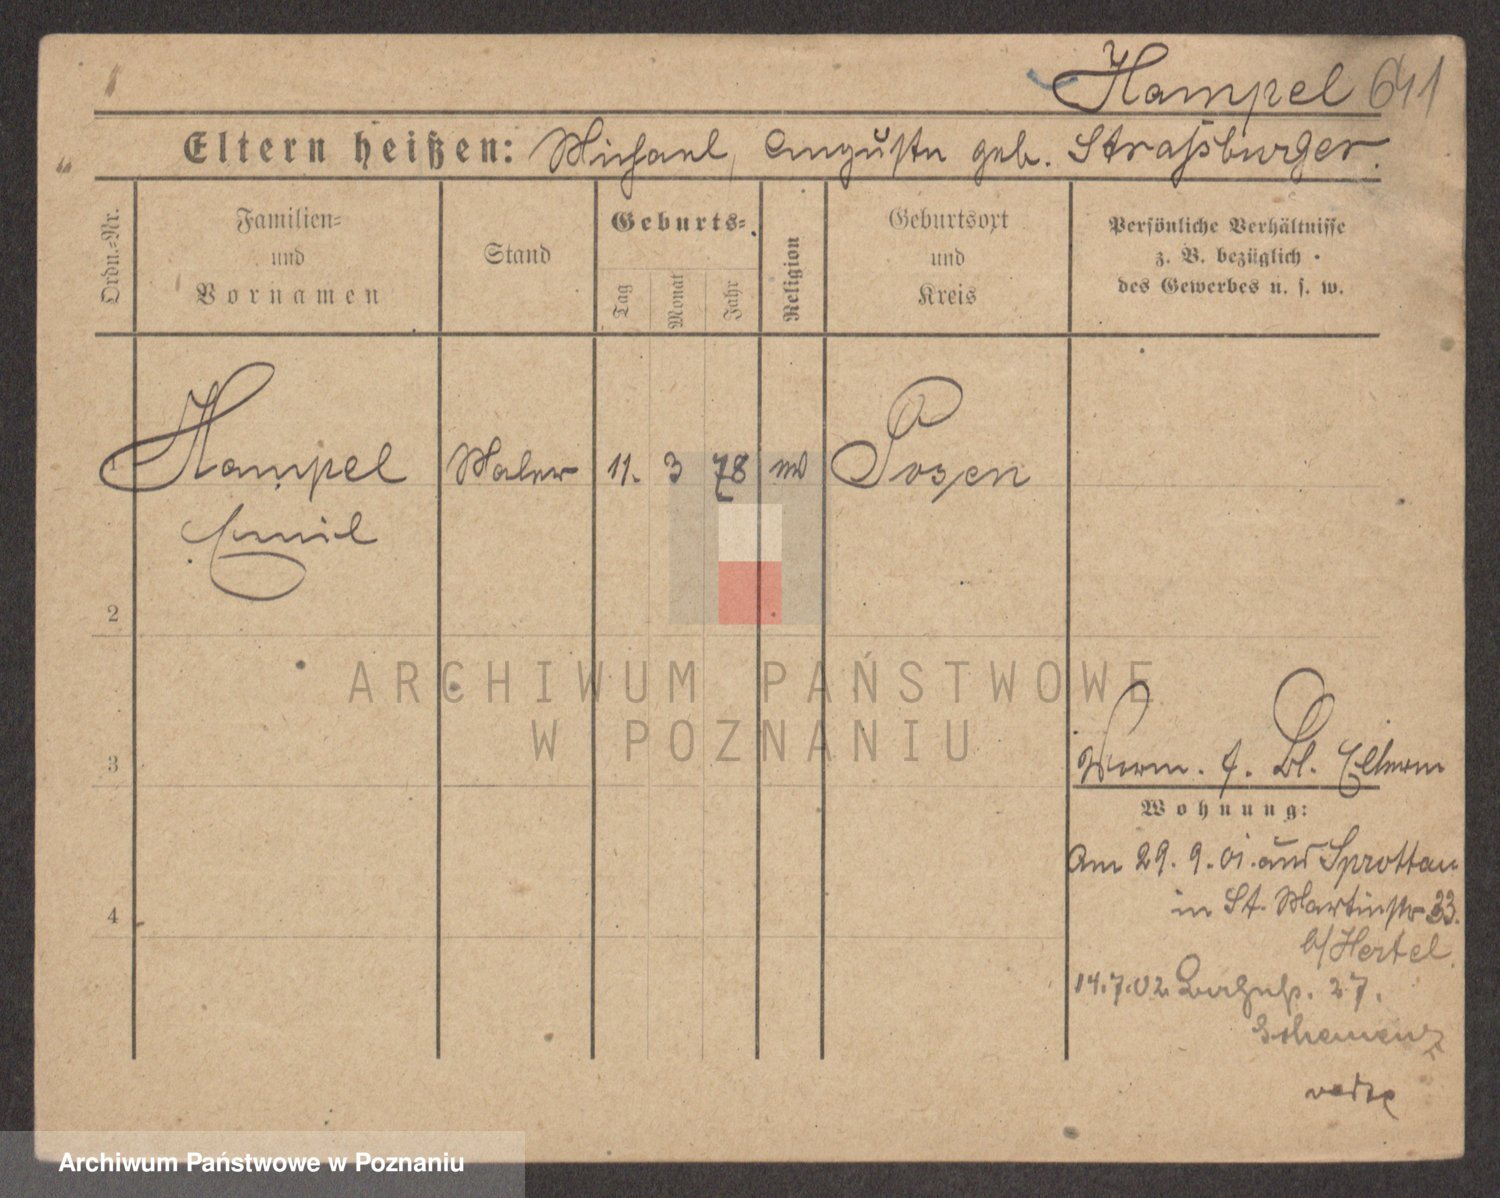 Hampel 641
Eltern heißen: Michael, Auguste geb. Straßburger.
Ordn.=Nr.
Familien=
und
Vornamen
Stand
Geburts=
Tag
Monat
Jahr
Religion
Geburtsort
und
Kreis
Persönliche Verhältnisse
z. B. bezüglich
des Gewerbes u. s. w.
1 Hampel Maler 11. 3 78 Posen
Emil
2
3
4
ARCHIWUM PAŃSTWOWE
W POZNANIU
Bl. Eltern
Wohnung:
Am 29. 9. 01. aus Sprottau
in St. Martinstr 33.
b/Hertel.
14.7.02 27.
Archiwum Państwowe w Poznaniu